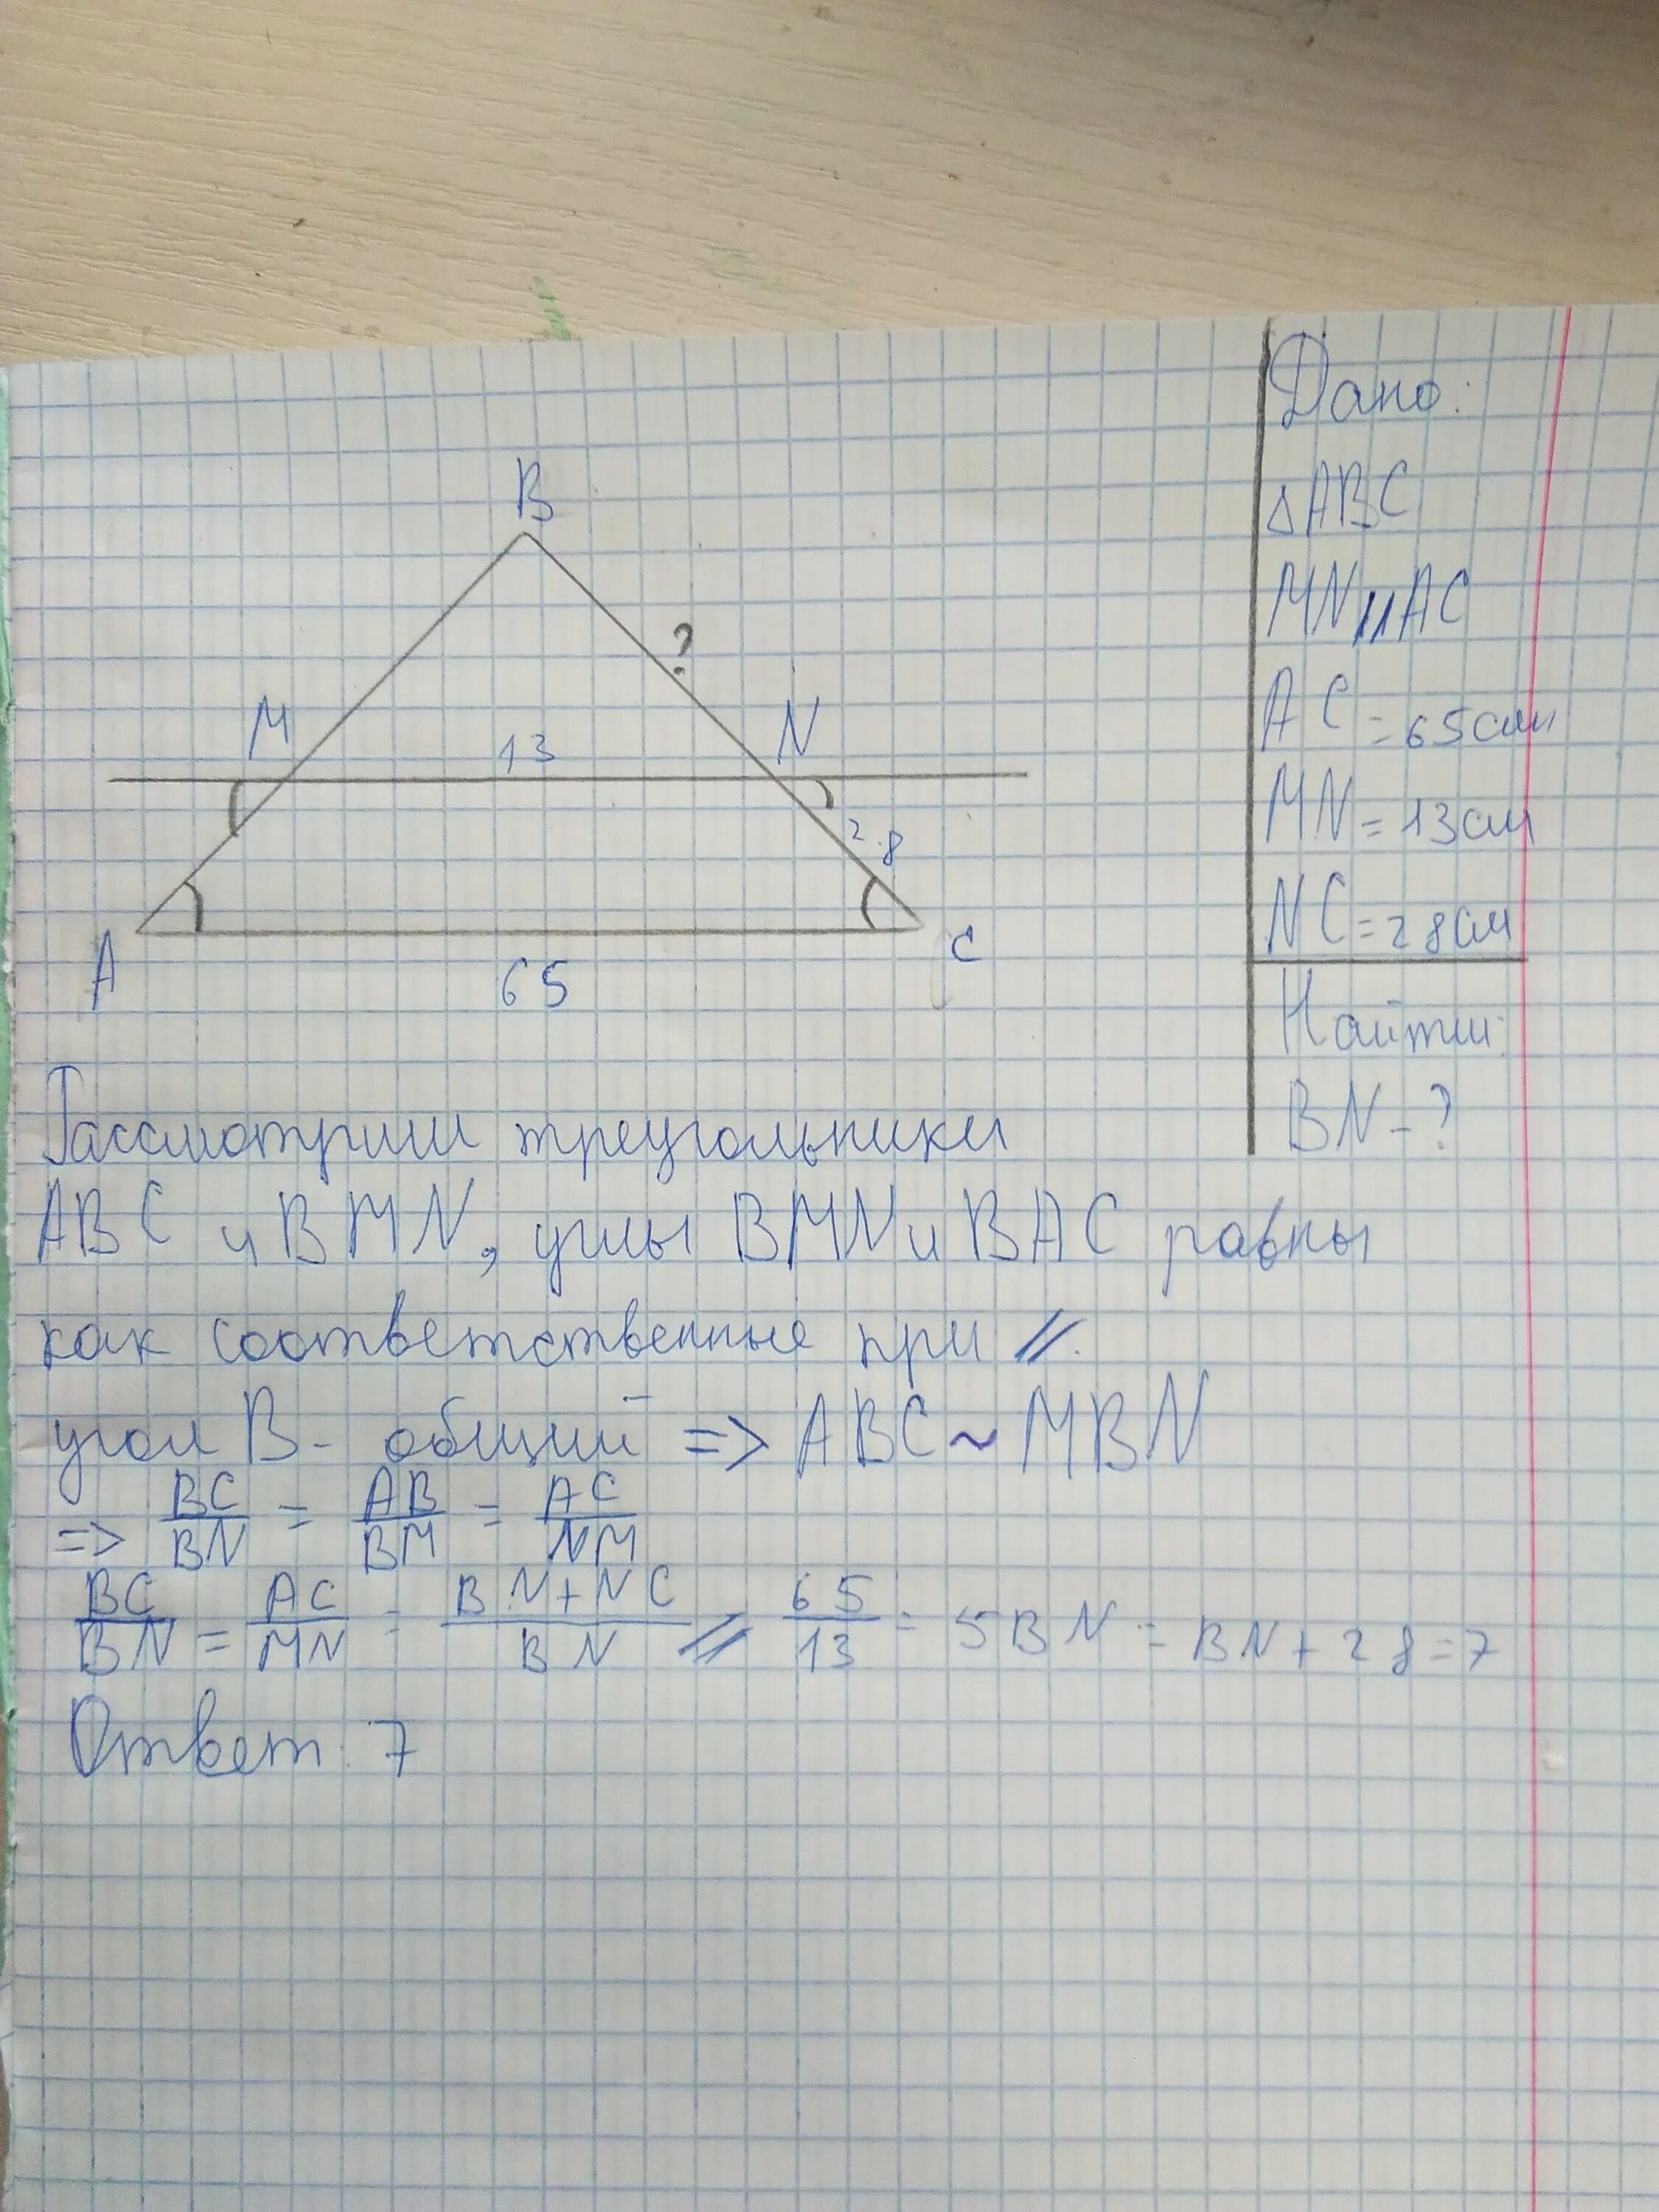 B
?
M
13
N
28
A
65
C
Дано:
△ABC
MN//AC
AC=65см
MN=13см
NC=28см
Найти:
BN-?
Рассмотрим треугольники
ABC и BMN, углы BMN и BAC равны
как соответственные при //.
угол B- общий => ABC ~ MBN
=> BC/BN = AB/BM = AC/NM
BC/BN = AC/MN = BN+NC/BN // 65/13 = 5BN = BN+28=7
Ответ: 7